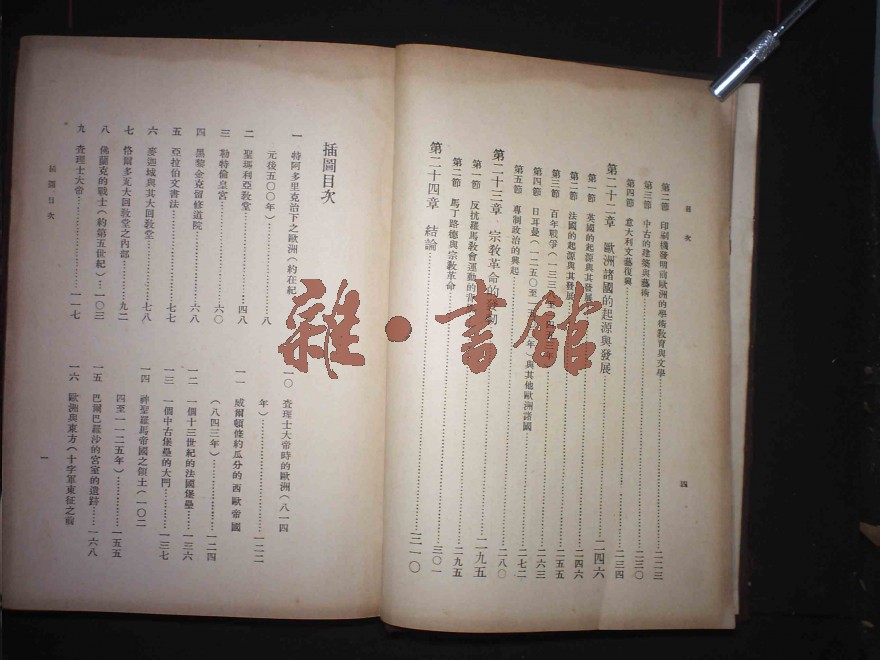 目次
第二節 印刷機發明前歐洲的學術教育與文學……二二三
第三節 中古的建築與藝術……二三〇
第四節 意大利文藝復興……二三四
第二十二章 歐洲諸國的起源與發展……二四六
第一節 英國的起源與其發展……二四六
第二節 法國的起源與其發展……二五五
第三節 百年戰爭……二六三
第四節 日耳曼(一二五〇至一五 年)與其他歐洲諸國……二七二
第五節 專制政治的興起……二八〇
第二十三章 宗教革命的 ……二九五
第一節 反抗羅馬教會運動的 ……二九五
第二節 馬丁路德與宗教革命……三〇一
第二十四章 結論……三一〇
四
插圖目次
一 特阿多里克治下之歐洲(約在紀
元後五〇〇年)……八
二 聖瑪利亞教堂……四八
三 勒特倫皇宮……六〇
四 墨黎金克留修道院……六八
五 亞拉伯文書法……七七
六 麥迦城與其大回教堂……七八
七 恪爾多瓦大回教堂之內部……九二
八 佛蘭克的戰士(約第五世紀)…一〇三
九 查理士大帝……一一七
一〇 查理士大帝時的歐洲(八一四
年)……一二二
一一 威爾頓條約瓜分的西歐帝國
(八四三年)……一二四
一二 一個十三世紀的法國堡壘……一三六
一三 一個中古堡壘的大門……一三七
一四 神聖羅馬帝國之領土(一〇二
四至一一二五年)……一五五
一五 巴爾巴羅沙的宮室的遺跡……一六八
一六 歐洲與東方(十字軍東征之前
插圖目次
一
雜·書館